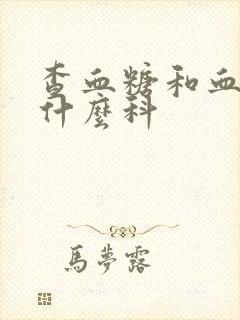 查血糖和血
什麼科
馬夢露